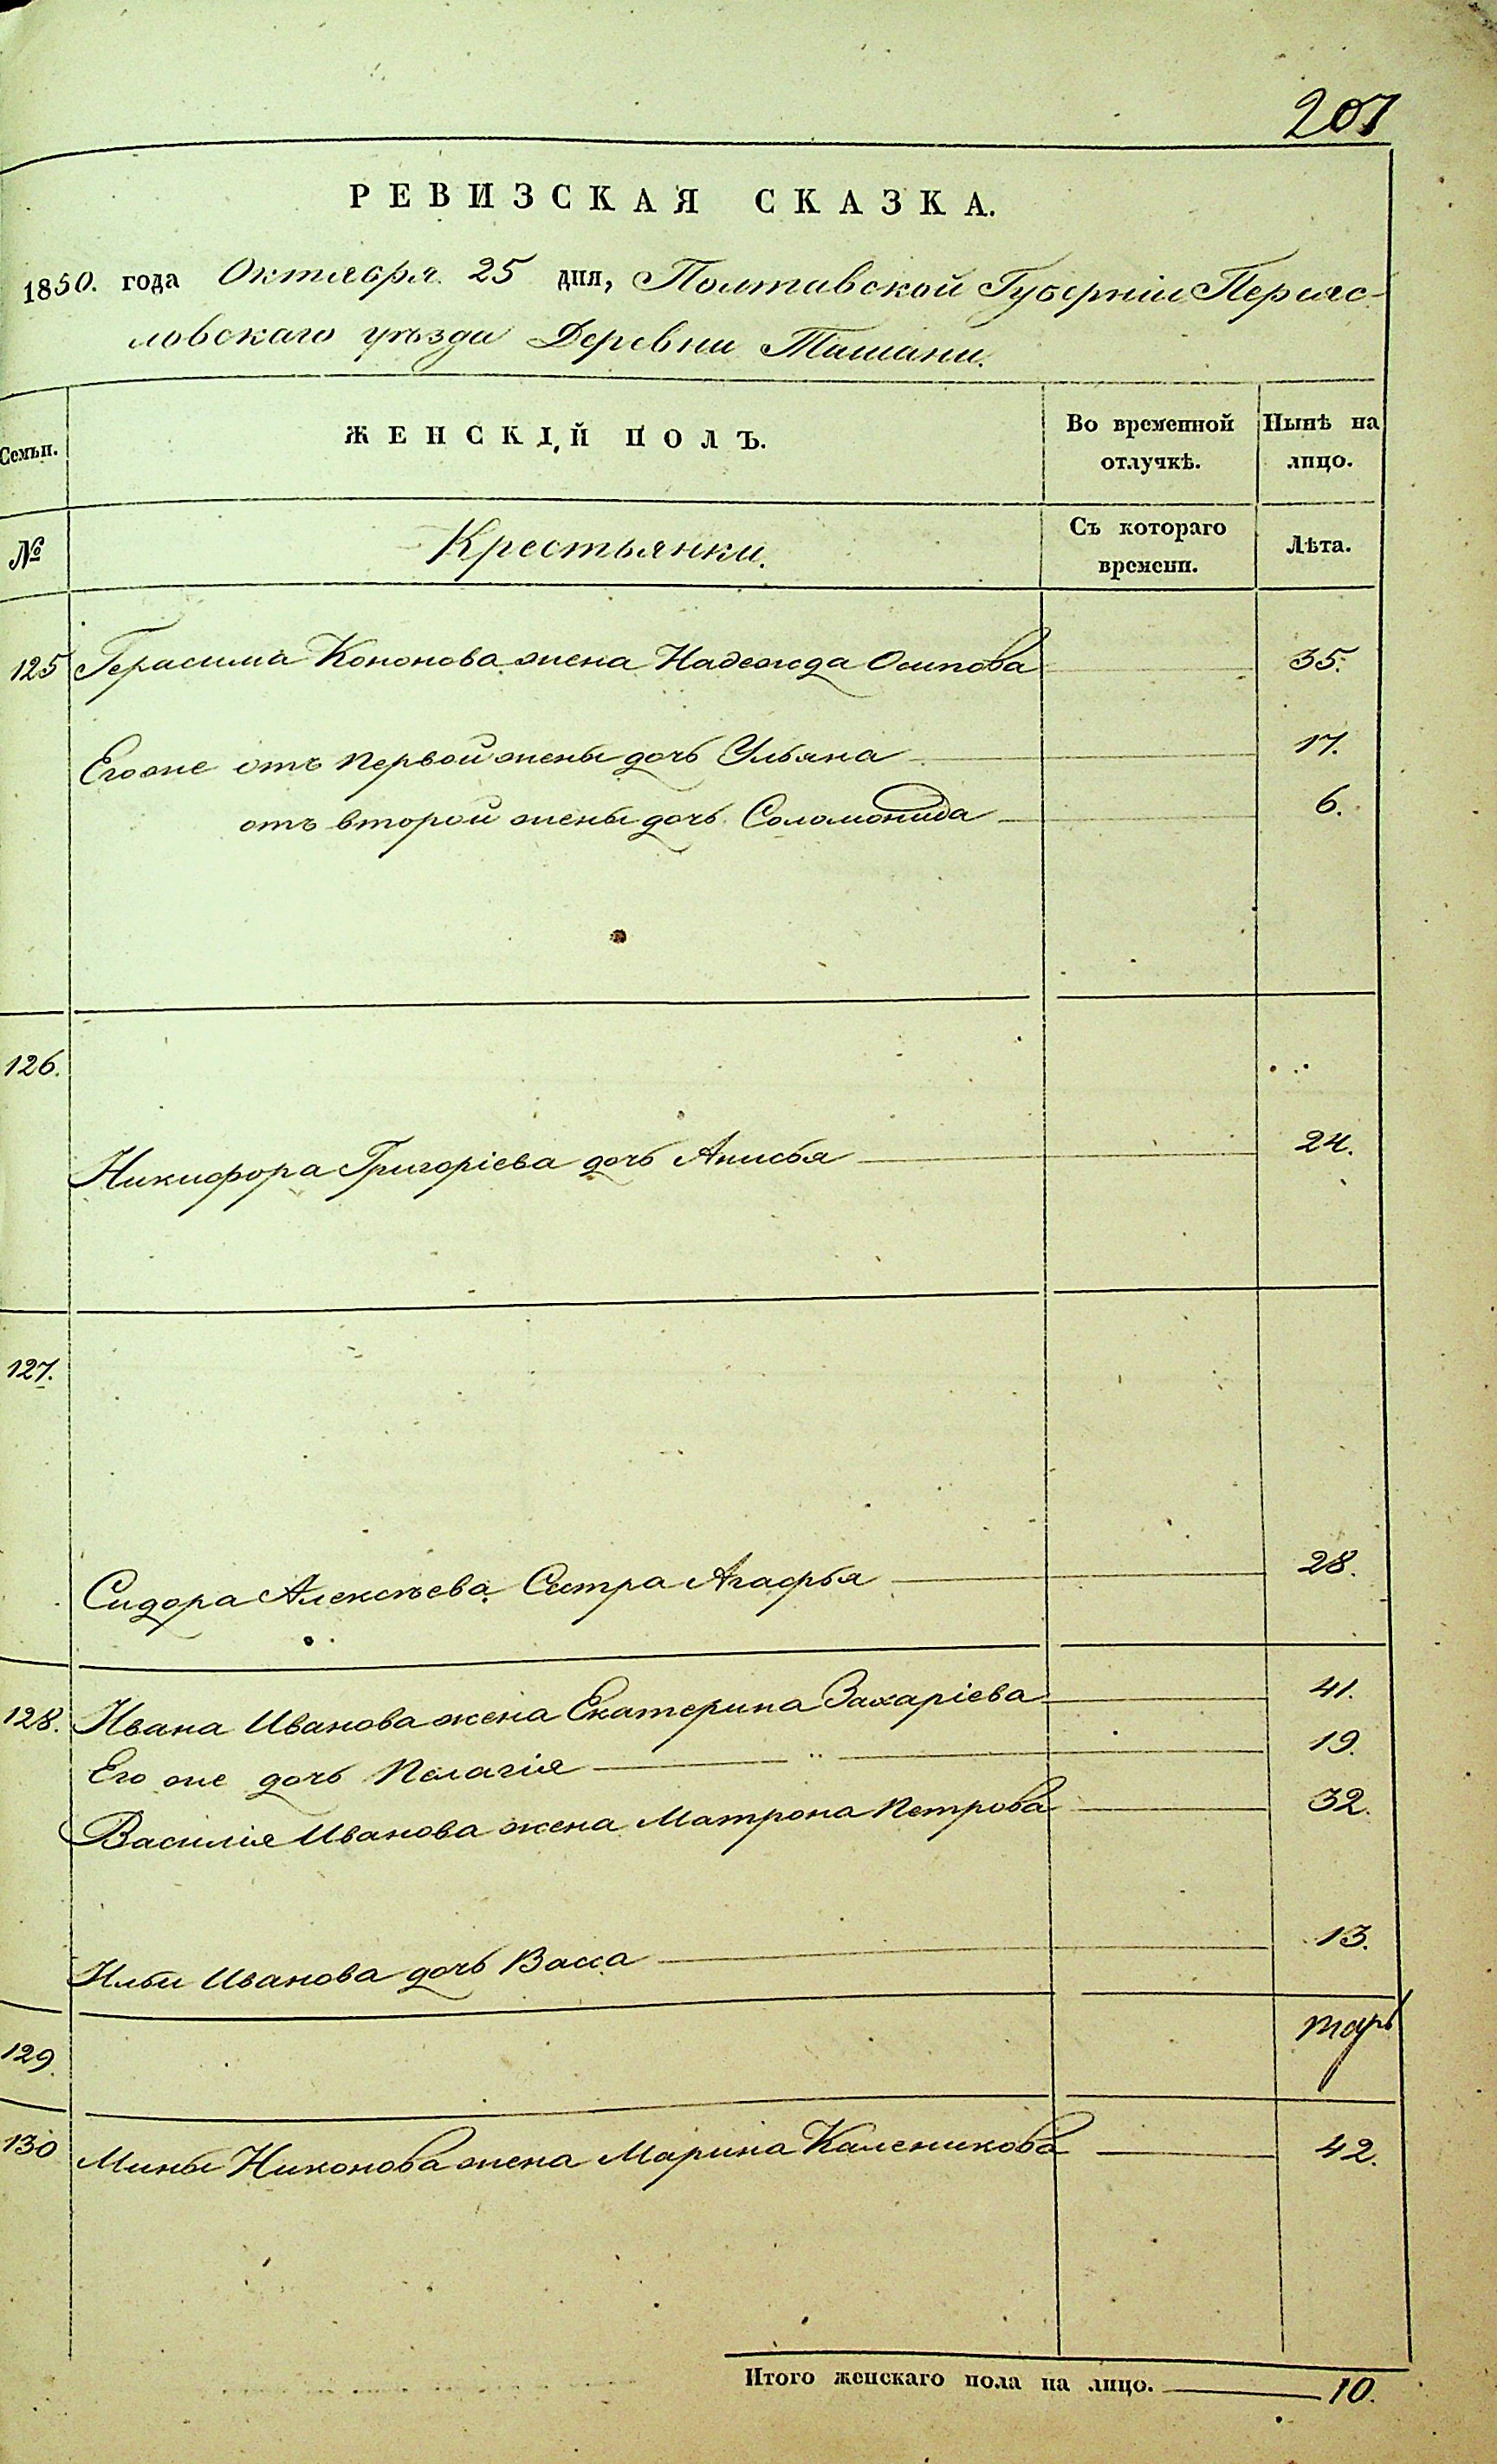 207
РЕВИЗСКАЯ СКАЗКА.
1850. года Октября 25 дня, Полтавской Губерніи Переяс-
ловскаго уѣзда Деревни Ташани.
Семьи. ЖЕНСКІЙ ПОЛЪ. Во временной отлучкѣ. Нынѣ на лицо.
№ Крестьянки. Съ котораго времени. Лѣта.
125 Герасима Кононова жена Надежда Осипова 35.
Его же отъ первой жены дочь Ульяна 17.
отъ второй жены дочь Соломонида 6.
126.
Никифора Григоріева дочь Анисья 24.
127.
Сидора Алексѣева Сестра Агафья 28.
128. Ивана Иванова жена Екатерина Захаріева 41.
Его же дочь Пелагія 19.
Василія Иванова жена Матрона Петрова 32.
Ильи Иванова дочь Васса 13.
129.
130 Мины Никонова жена Марина Каленикова 42.
Итого женскаго пола на лицо. 10.